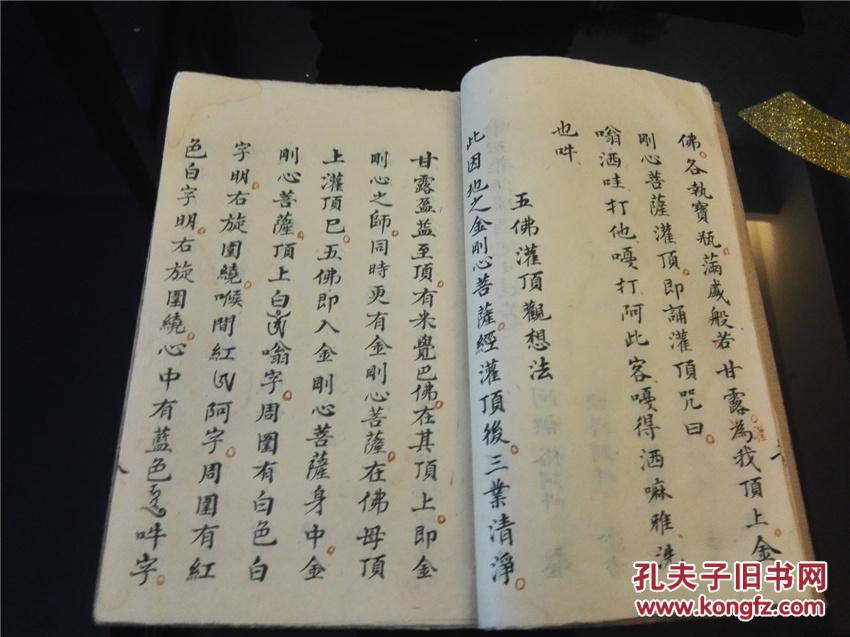 佛。各執寶瓶。滿盛般若甘露。為我頂上金
剛心菩薩灌頂。即誦灌頂咒曰。
嗡洒哇打他嘎打阿此客嘎得洒嘛雅
也吽
五佛灌頂觀想法
此因地之金剛心菩薩。經灌頂後。三業清淨。
甘露盈益至頂。有米覺巴佛。在其頂上。即金
剛心之師。同時更有金剛心菩薩。在佛母頂
上灌頂已。五佛即入金剛心菩薩身中。金
剛心菩薩。頂上白嗡字。周圍有白色白
字明。右旋圍繞。喉間紅阿字。周圍有紅
色白字明。右旋圍繞。心中有藍色吽字。
孔夫子旧书网
www.kongfz.com